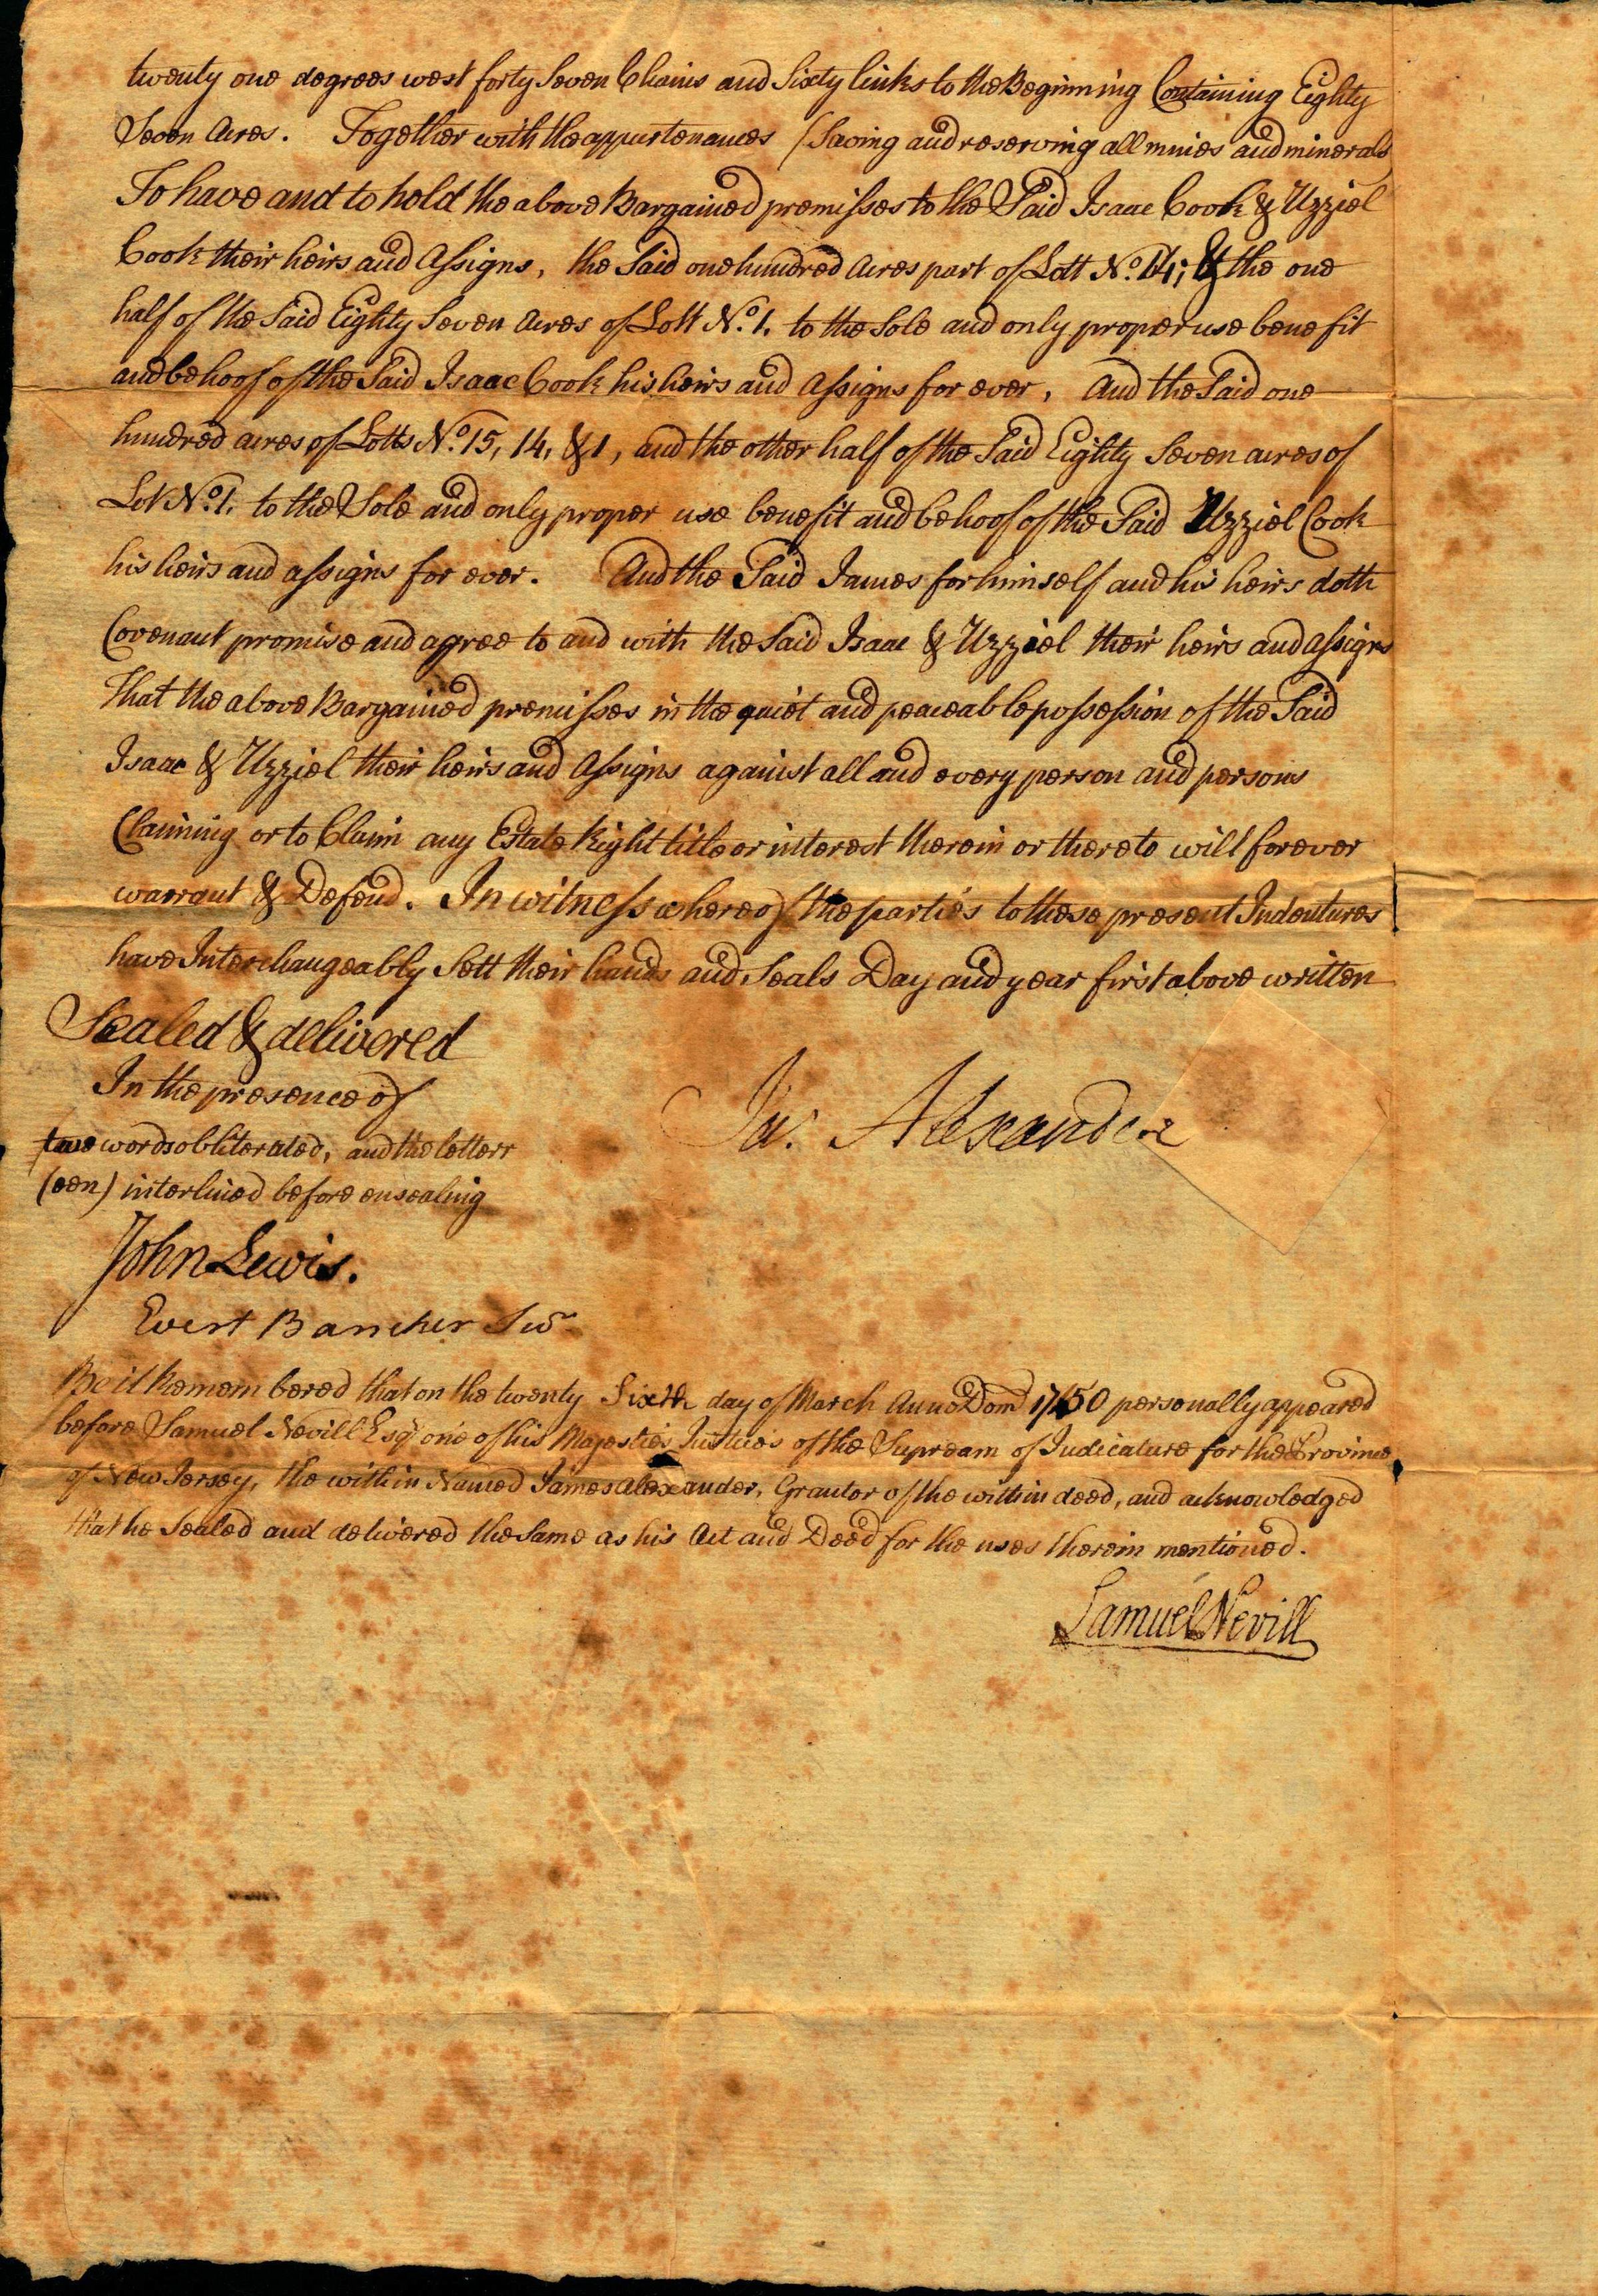 twenty one degrees west forty Seven Chains and Sixty links to the Beginning Containing Eighty
Seven Acres. Together with the appurtenances (Saving and reserving all mines and minerals
To have and to hold the above Bargained premisses to the Said Isaac Cook & Uzziel
Cook their heirs and Assigns, the Said one hundred Acres part of Lott No. 14; & the one
half of the Said Eighty Seven Acres of Lott No. 1. to the Sole and only proper use benefit
and behoof of the Said Isaac Cook his heirs and Assigns for ever, And the Said one
hundred acres of Lotts No. 15, 14, & 1, and the other half of the Said Eighty Seven acres of
Lot No. 1. to the Sole and only proper use benefit and behoof of the Said Uzziel Cook
his heirs and assigns for ever. And the Said James for himself and his heirs doth
Covenant promise and agree to and with the Said Isaac & Uzziel their heirs and assigns
That the above Bargained premisses in the quiet and peaceable possession of the Said
Isaac & Uzziel their heirs and Assigns against all and every person and persons
Claiming or to Claim any Estate Right title or interest therein or thereto will forever
warrant & Defend. In witness whereof the parties to these present Indentures
have Interchangeably Sett their hands and Seals Day and year first above written
Sealed & delivered
In the presence of
two words obliterated, and the letters
(een) interlined before ensealing
Ja: Alexander
John Lewis.
Evert Bancker Junr
Be it Remembered that on the twenty Sixth day of March Anno Dom 1750 personally appeared
before Samuel Nevill Esqr one of his Majesties Justices of the Supream of Judicature for the Province
of New Jersey, the within Named James Alexander, Grantor of the within deed, and acknowledged
that he Sealed and delivered the Same as his Act and Deed for the uses therein mentioned.
Samuel Nevill